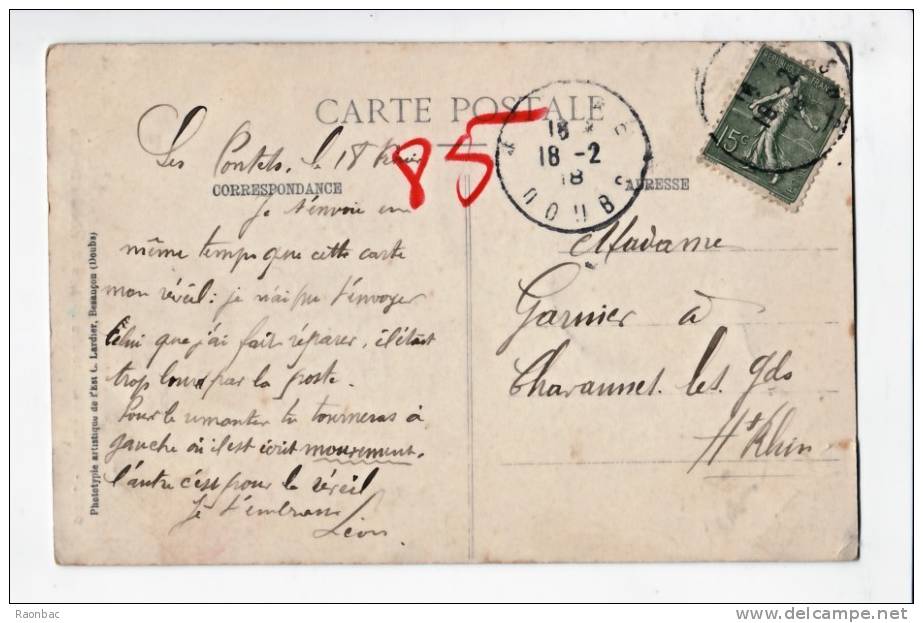 CARTE POSTALE
Les Pontets, le 18 février
CORRESPONDANCE
Je t'envoie en
même temps que cette carte
mon réveil : je n'ai pu t'envoyer
celui que j'ai fait réparer, il était
trop lourd par la poste.
Pour le remonter tu tourneras à
gauche où il est écrit mouvement.
l'autre c'est pour le réveil
Je t'embrasse
Léon
85
18 *
18 -2
18
DOUBS
ADRESSE
Madame
Garnier à
Chavannes les Gds
Ht Rhin
15c
Phototypie artistique de l'Est C. Lardier, Besançon (Doubs)
Raonbac
www.delcampe.net